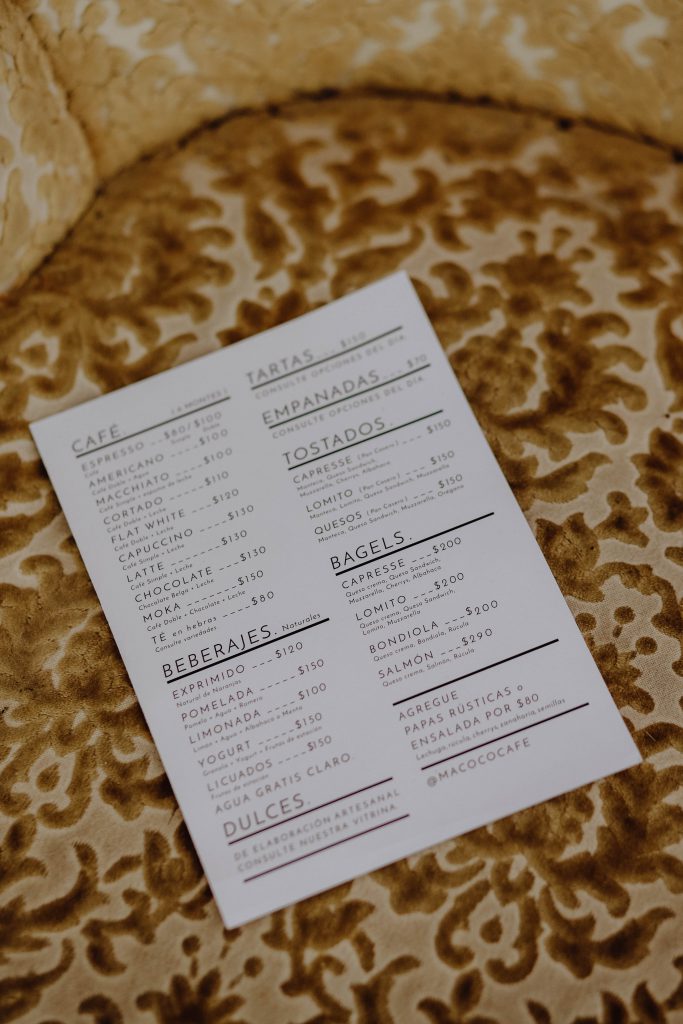 CAFÉ. (A MONTES)
ESPRESSO --$80/$100
Café Simple Doble
AMERICANO ---$100
Café Doble + Agua
MACCHIATO ----$100
Café Simple + espuma de leche
CORTADO ----$110
Café Doble + Leche
FLAT WHITE ----$120
Café Doble + Leche
CAPUCCINO ----$130
Café Simple + Leche
LATTE ----$130
Café Simple + Leche
CHOCOLATE ---$130
Chocolate Belga + Leche
MOKA -----$150
Café Doble + Chocolate + Leche
TÉ en hebras ----$80
Consulte variedades
BEBERAJES. Naturales
EXPRIMIDO ---$120
Natural de Naranjas
POMELADA ----$150
Pomelo + Agua + Romero
LIMONADA ----$100
Limón + Agua + Albahaca o Menta
YOGURT -----$150
Granola + Yogurt + Frutas de estación
LICUADOS ----$150
Frutas de estación
AGUA GRATIS CLARO.
DULCES.
DE ELABORACIÓN ARTESANAL
CONSULTE NUESTRA VITRINA.
TARTAS --- $150
CONSULTE OPCIONES DEL DIA.
EMPANADAS --- $70
CONSULTE OPCIONES DEL DIA.
TOSTADOS.
CAPRESSE (Pan Casero) --- $150
Manteca, Queso Sandwich,
Muzzarella, Cherrys, Albahaca
LOMITO (Pan Casero) ---- $150
Manteca, Lomito, Queso Sandwich, Muzzarella
QUESOS (Pan Casero) --- $150
Manteca, Queso Sandwich, Muzzarella, Oregano
BAGELS.
CAPRESSE ---$200
Queso crema, Queso Sandwich,
Muzzarella, Cherrys, Albahaca
LOMITO ----$200
Queso crema, Queso Sandwich,
Lomito, Muzzarella
BONDIOLA ---$200
Queso crema, Bondiola, Rucula
SALMÓN ---$290
Queso crema, Salmón, Rucula
AGREGUE
PAPAS RÚSTICAS o
ENSALADA POR $80
Lechuga, rucula, cherrys, zanahoria, semillas
@MACOCOCAFE